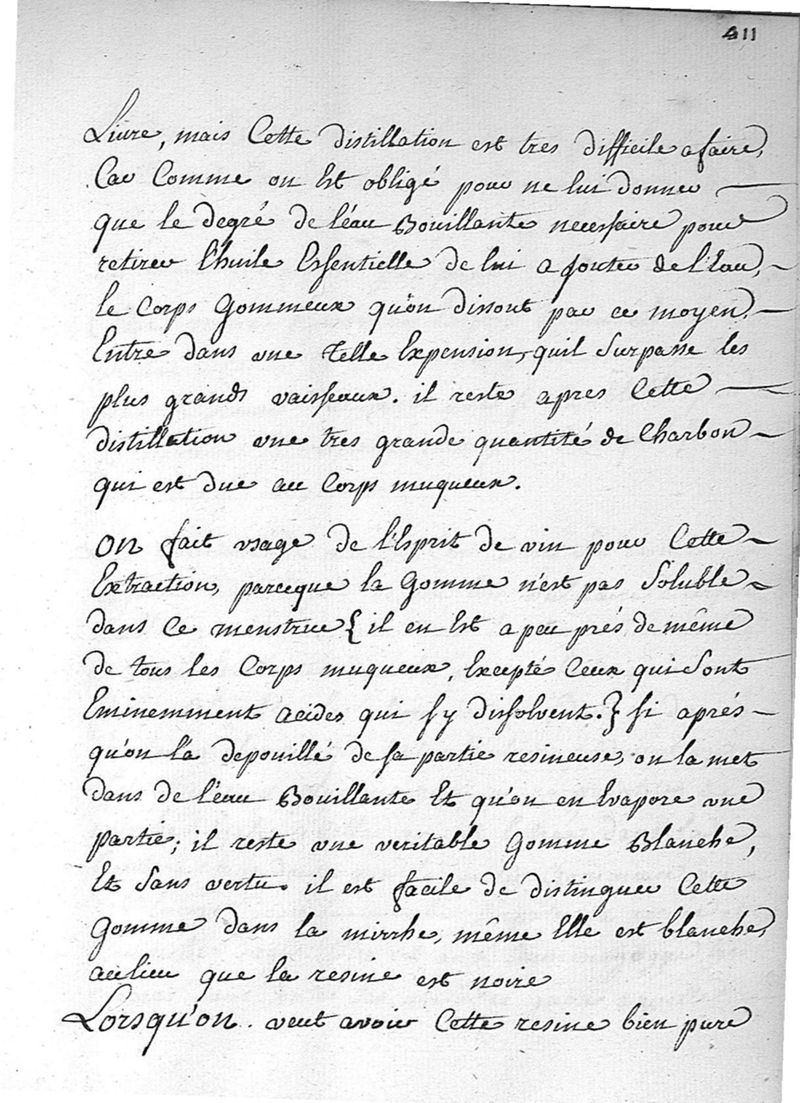 411
Livre, mais Cette distillation est tres difficile a faire,
Car Comme on Est obligé pour ne lui donner
que le degré de l'éau Bouillante necessaire pour
retirer l'huile Essentielle de lui ajouter de l'Eau,
le Corps Gommeux qu'on dissout par ce moyen,
Entre dans une telle Expension, qu'il Surpasse les
plus grands vaisseaux. il reste apres Cette
distillation une tres grande quantité de Charbon
qui est due au Corps muqueux.
On fait usage de l'Esprit de vin pour Cette
Extraction, parceque la Gomme n'est pas Soluble
dans Ce menstrue { il en Est a peu prés de même
de tous les Corps muqueux, Excepté Ceux qui Sont
Eminemment acides qui s'y dissolvent. } si aprés
qu'on l'a depouillé de sa partie resineuse, on la met
dans de l'éau Bouillante Et qu'on en Evapore une
partie; il reste une veritable Gomme Blanche,
Et Sans vertu. il est facile de distinguer Cette
Gomme dans la mirrhe, même Elle est blanche,
aulieu que la resine est noire
Lorsqu'on veut avoir Cette resine bien pure